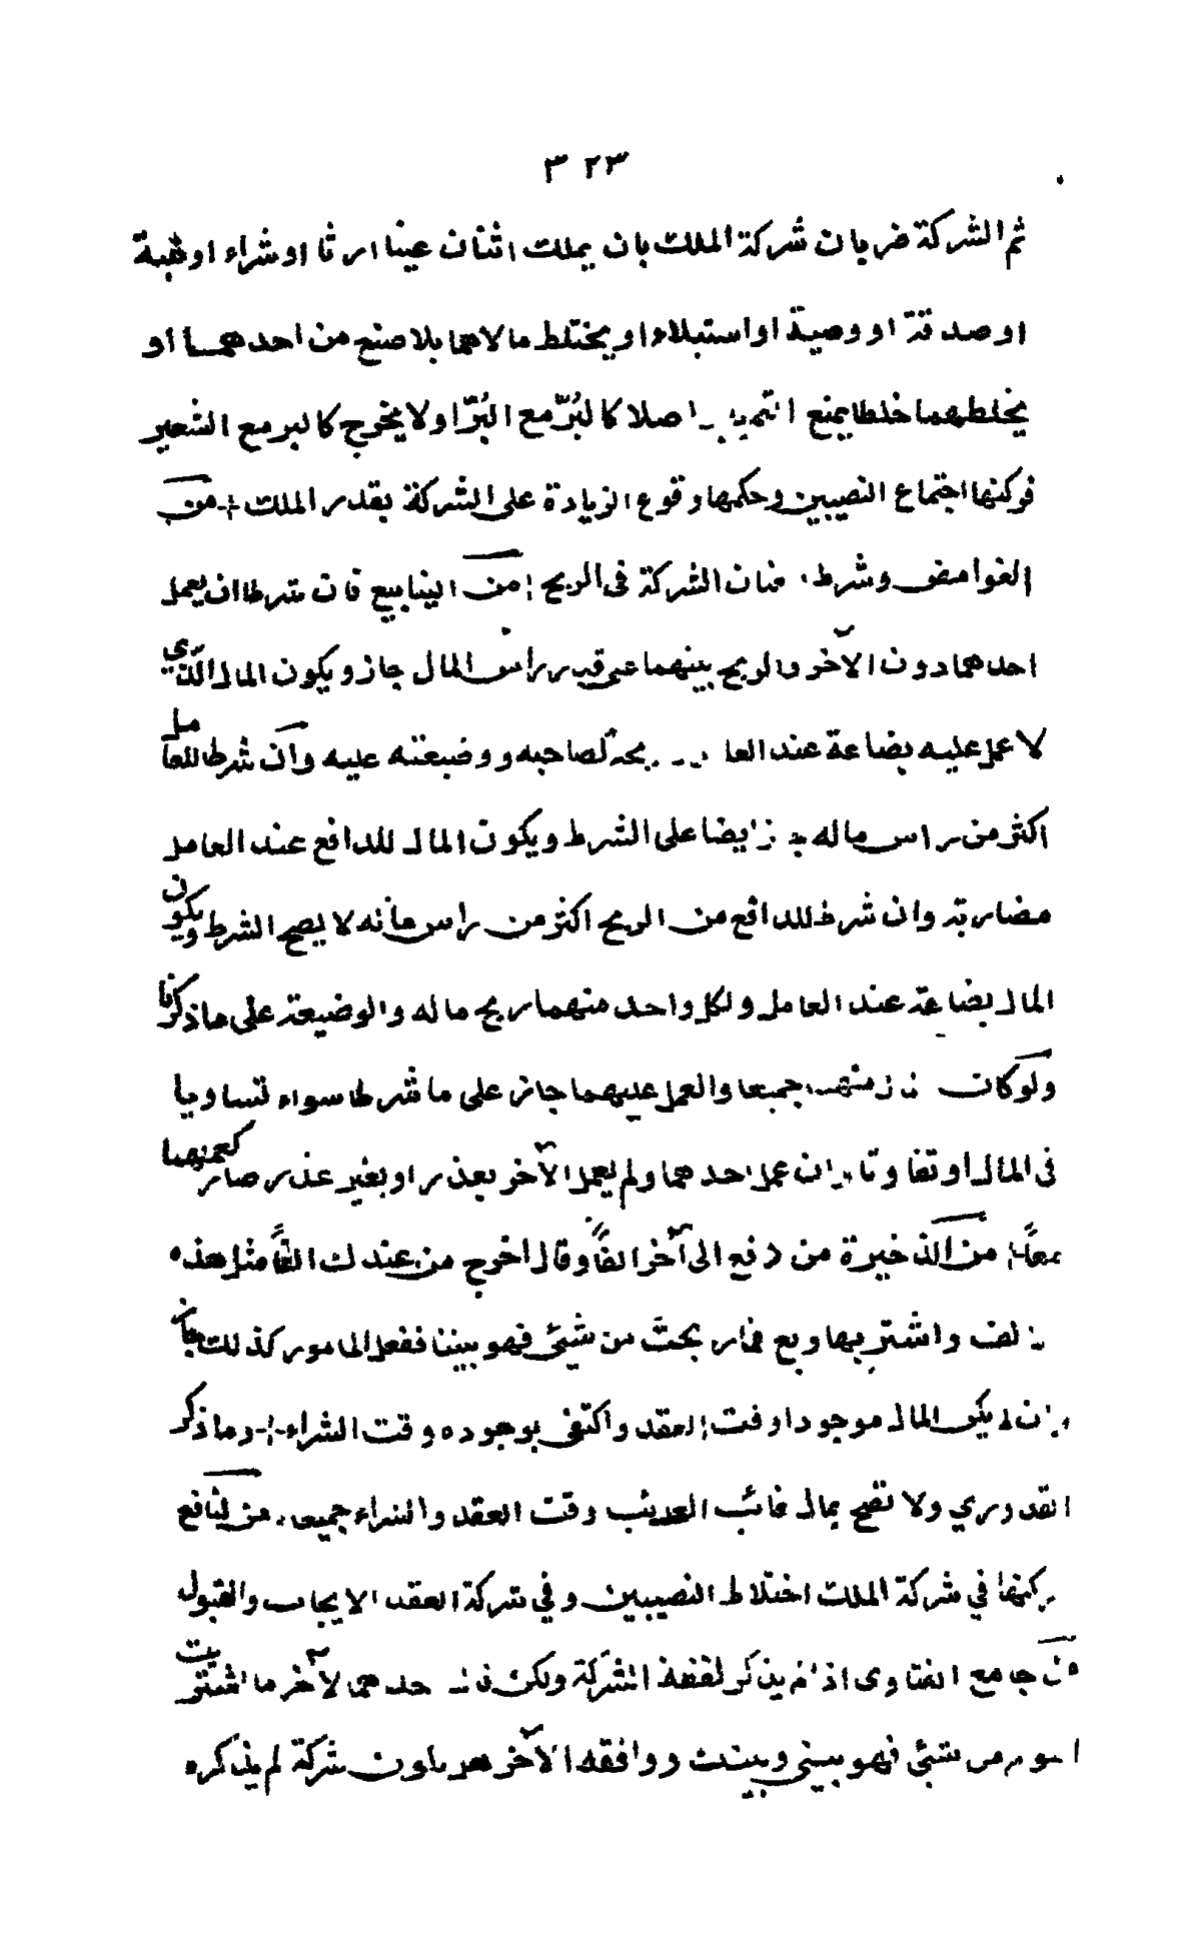 ٣٢٣
ثم الشركة ضربان شركة الملك بان يملك اثنان عينا ارثا او شراء او هبة
او صدقة او وصية او استيلاء او يختلط مالاهما بلا صنع من احدهما او
يخلطهما خلطا يمنع اصلا كالبُرّ مع البُرّ او لا يخرج كالبر مع الشعير
فركنها اجتماع النصيبين وحكمها وقوع الزيادة على الشركة بقدر الملك من
الغوامض وشرط الشركة فى الربح من الينابيع فان شرطا ان يعمل
احدهما دون الآخر والربح بينهما على قدر راس المال جاز ويكون المال الذي
لا عمل عليه بضاعة عند العا ربحه لصاحبه ووضيعته عليه وان شرط للعامل
اكثر من راس ماله ايضا على الشرط ويكون المال للدافع عند العامل
مضاربة وان شرط للدافع من الربح اكثر من راس ماله لا يصح الشرط ويكون
المال بضاعة عند العامل ولكل واحد منهما ربح ماله والوضيعة على ما ذكرنا
ولو كان منهما جميعا والعمل عليهما جاز على ما شرطا سواء تساويا
فى المال او تفاوتا ان عمل احدهما ولم يعمل الآخر بعذر او بغير عذر صار كعملهما
معًا من الذخيرة من دفع الى آخر الفًا وقال اخرج من عندك الفًا مثل هذه
واشتر بها وبع فما ربحت من شيئ فهو بيننا ففعل المامور كذلك جاز
وان لم يكن المال موجودا وقت العقد واكتفى بوجوده وقت الشراء وما ذكر
القدوري ولا تصح بمال غائب وقت العقد والشراء جميعا من النافع
ركنها في شركة الملك اختلاط النصيبين وفي شركة العقد الايجاب والقبول
من جامع الفتاوى اذا لم يذكر لفظة الشركة ولكن قال احدهما لآخر ما اشتريت
اليوم من شيئ فهو بيني وبينك ووافقه الآخر شركة لم يذكره